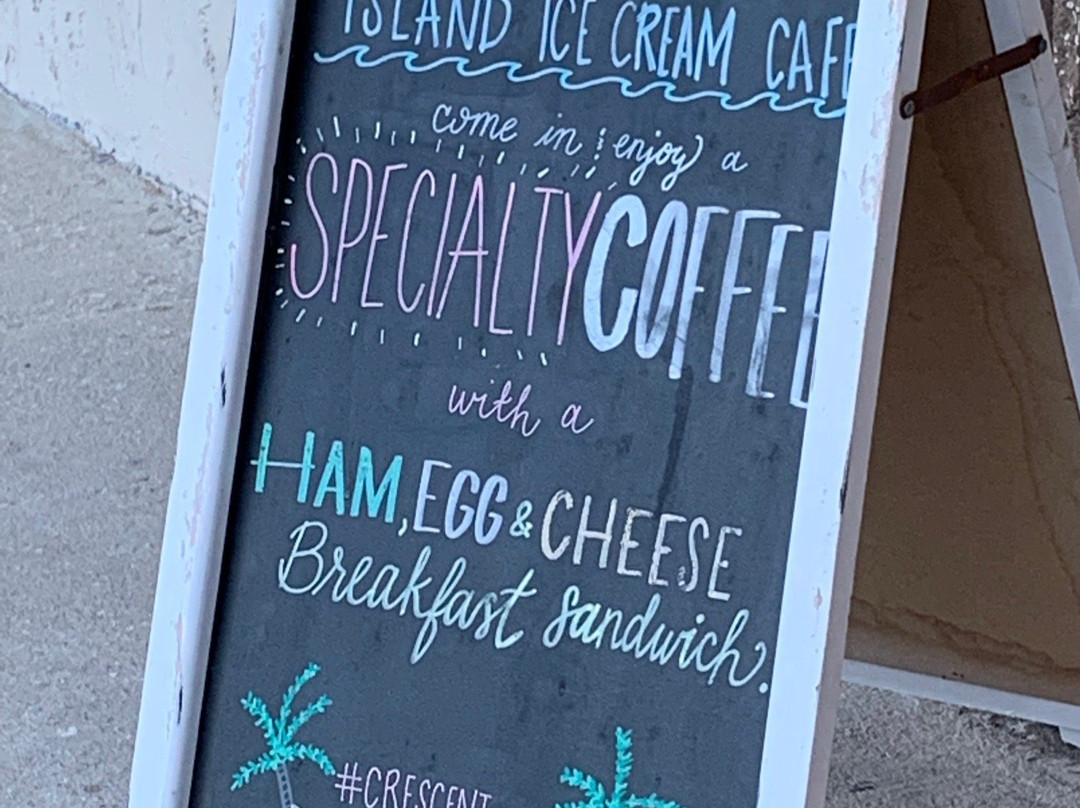 ISLAND ICE CREAM CAFE
come in & enjoy a
SPECIALTY COFFEE
with a
HAM, EGG & CHEESE
Breakfast Sandwich.
#CRESCENT